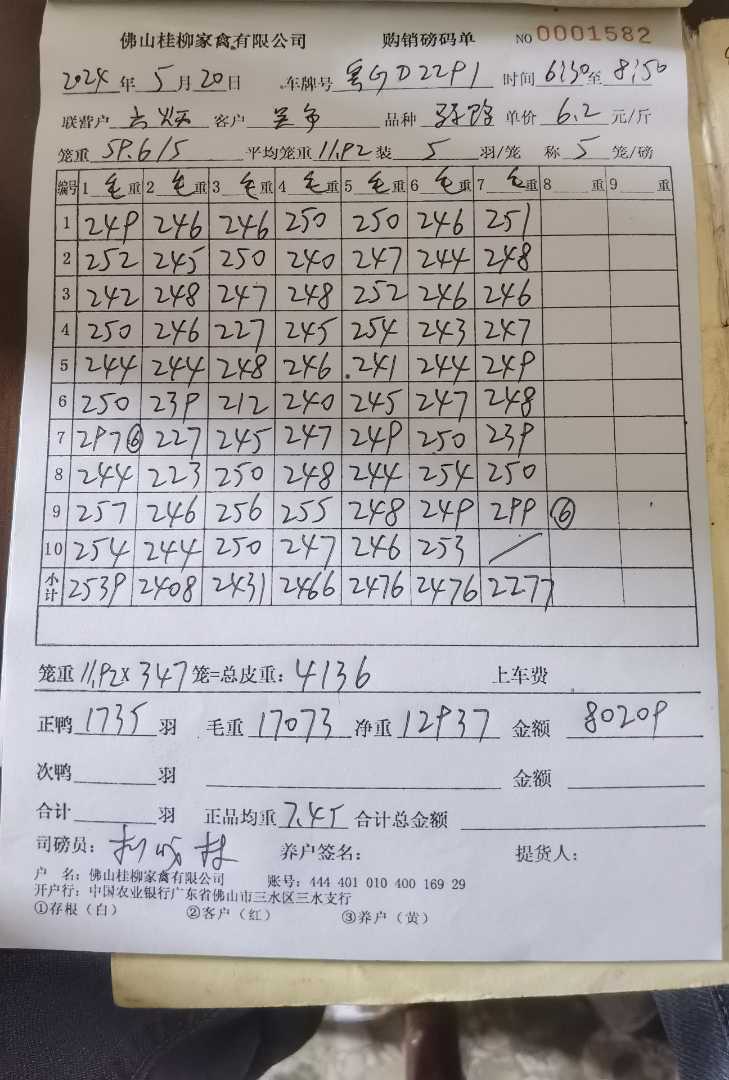 佛山桂柳家禽有限公司 购销磅码单 NO 0001582
2024年5月20日 车牌号 粤GD2291 时间 6:30至8:50
联营户 客户 品种 单价 6.2 元/斤
笼重 59.6/5 平均笼重 11.92 装 5 羽/笼 称 5 笼/磅
编号 1 毛重 2 毛重 3 毛重 4 毛重 5 毛重 6 毛重 7 毛重 8 重 9 重
1 249 246 246 250 250 246 251
2 252 245 250 240 247 244 248
3 242 248 247 248 252 246 246
4 250 246 227 245 254 243 247
5 244 244 248 246 241 244 249
6 250 239 212 240 245 247 248
7 297⑥ 227 245 247 249 250 239
8 244 223 250 248 244 254 250
9 257 246 256 255 248 249 299 ⑥
10 254 244 250 247 246 253 /
小计 2539 2408 2431 2466 2476 2476 2277
笼重 11.92x347笼=总皮重: 4136 上车费
正鸭 1735 羽 毛重 17073 净重 12937 金额 80209
次鸭 羽 金额
合计 羽 正品均重 7.45 合计总金额
司磅员: 养户签名: 提货人:
户 名: 佛山桂柳家禽有限公司 账号: 444 401 010 400 169 29
开户行: 中国农业银行广东省佛山市三水区三水支行
①存根(白) ②客户(红) ③养户(黄)